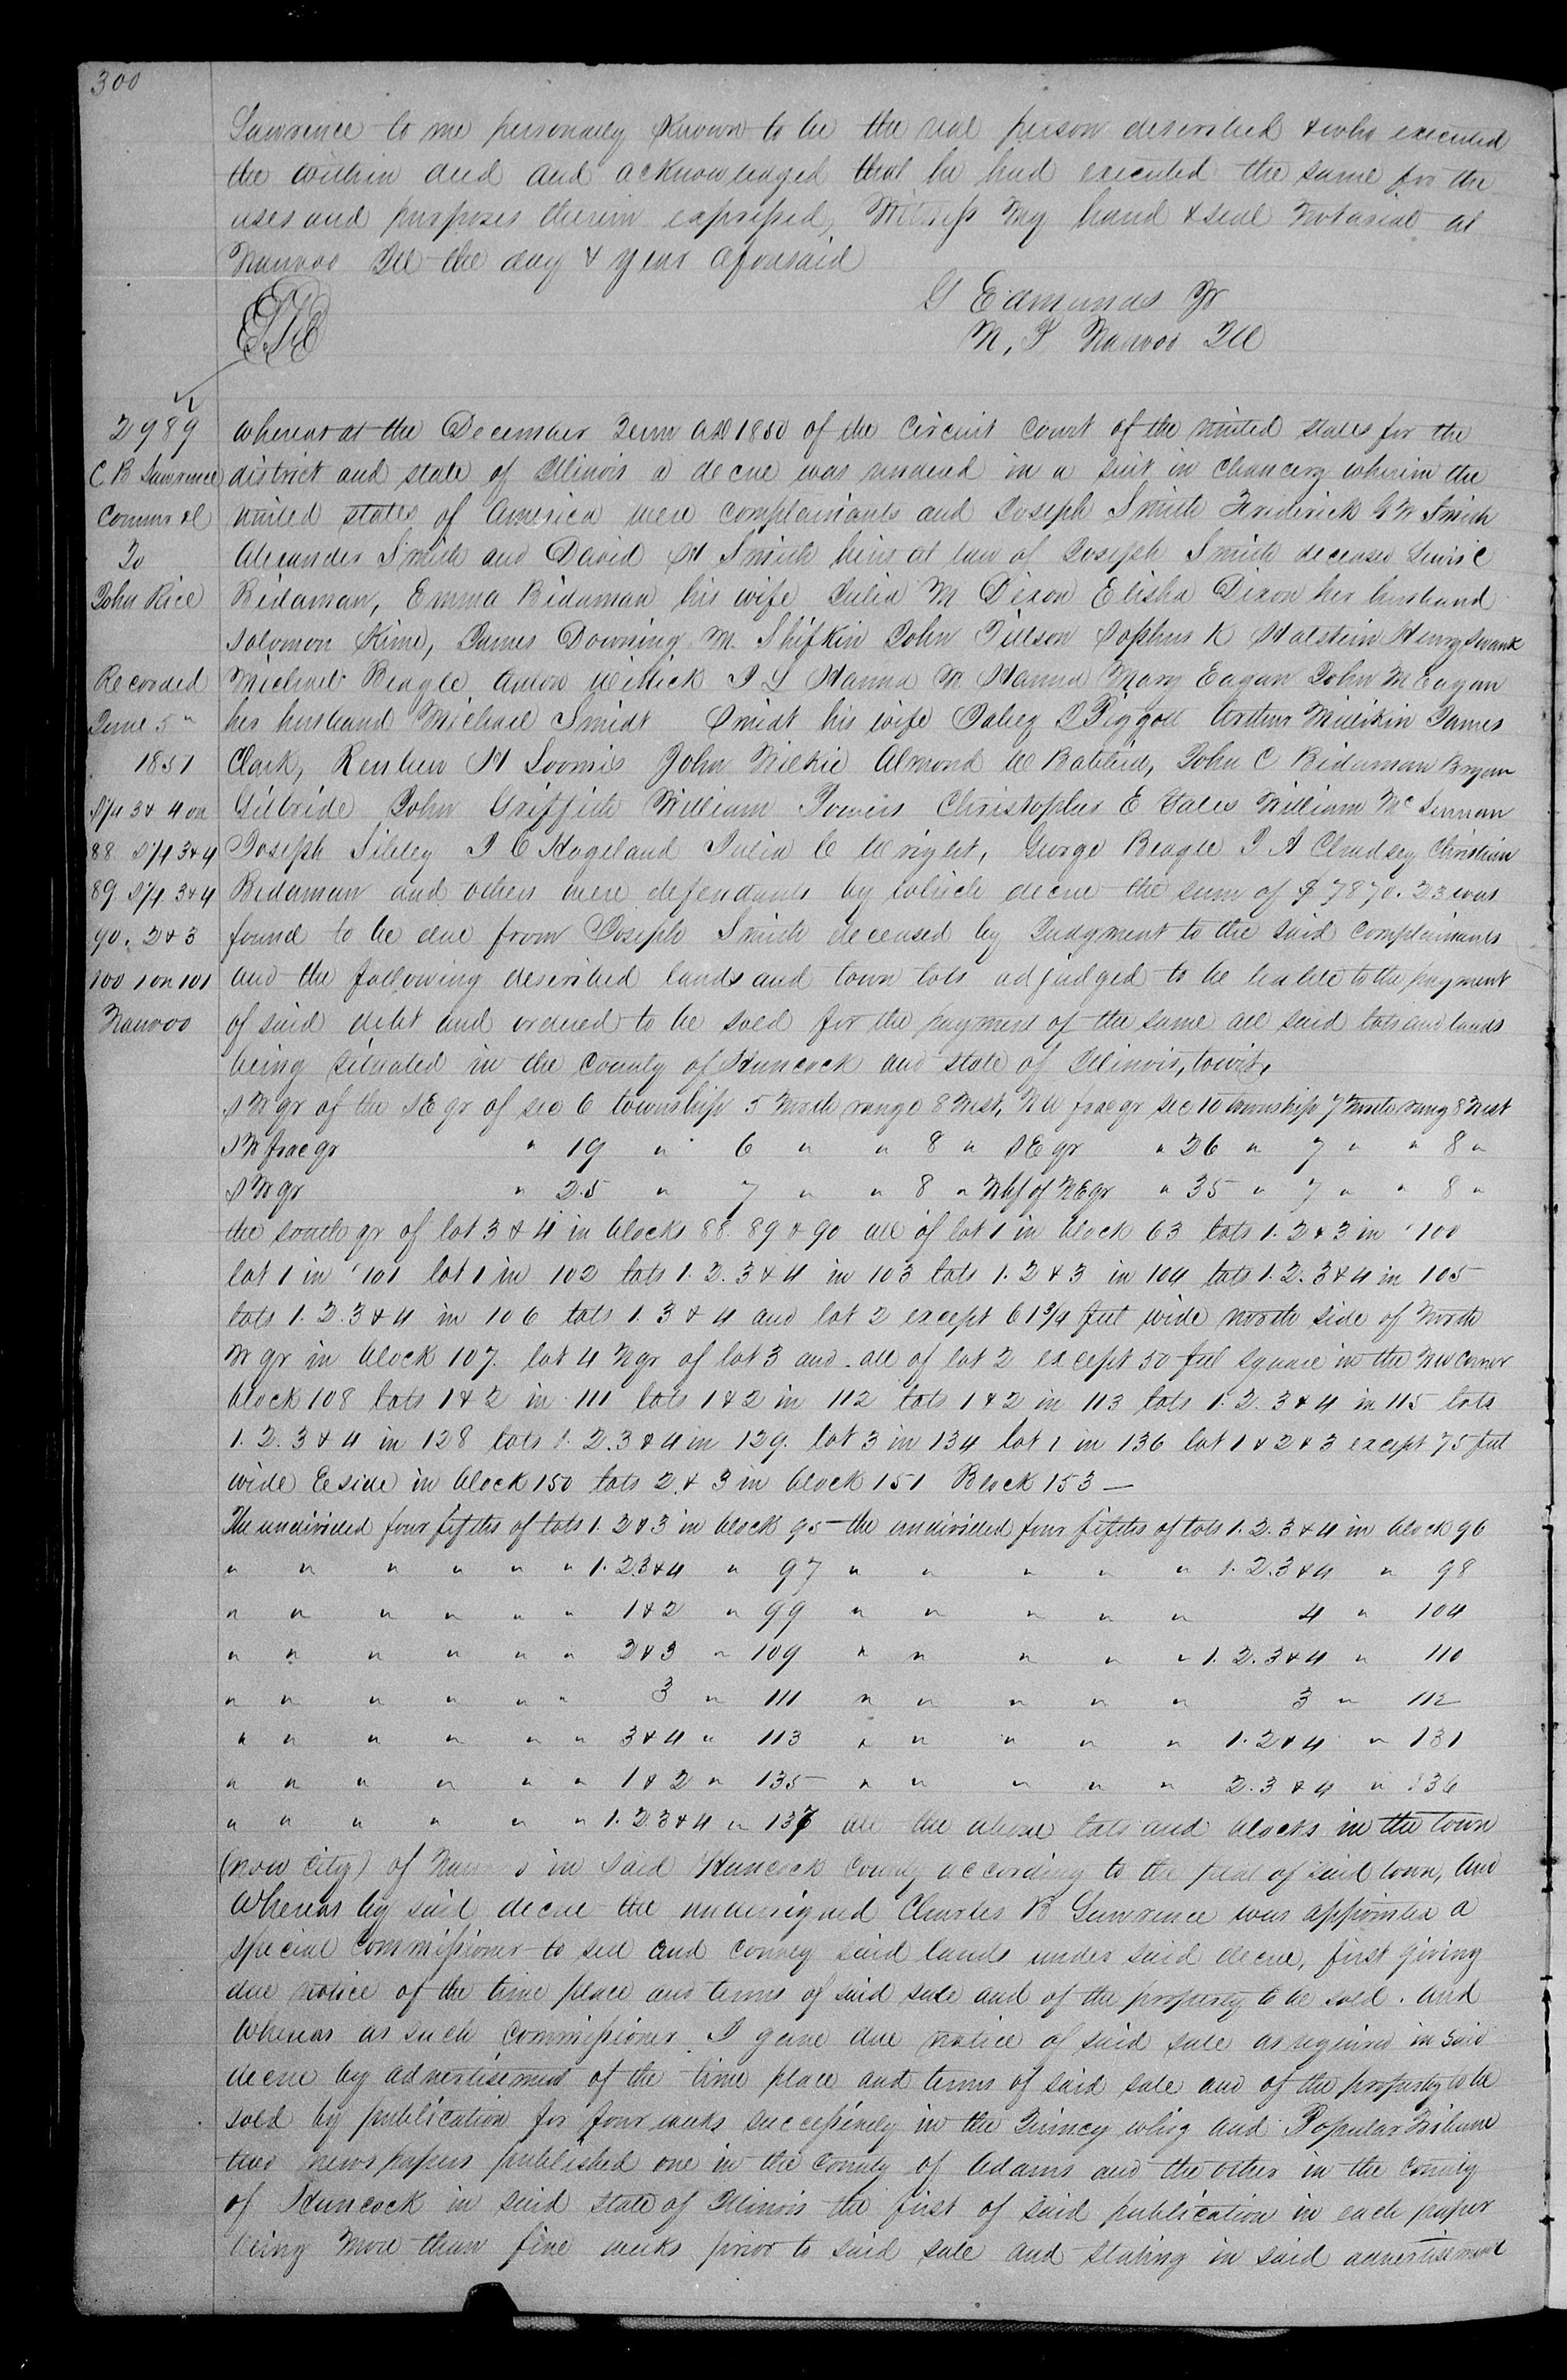 300
Lawrence to me personally Known to be the real person described & who executed
the within deed and acknowledged that he had executed the same for the
uses and purposes therein expressed, Witness my hand & seal Notarial at
Nauvoo Ill the day & year aforesaid
G Edmunds Jr
N. P. Nauvoo Ill
2989
C B Lawrence
Commr &c
To
John Rice
Recorded
June 5"
1851
S½ 3 & 4 on
88 S½ 3&4
89. S½ 3&4
90. 2&3
100 1 on 101
Nauvoo
Whereas at the December Term AD 1850 of the Circuit Court of the united states for the
district and state of Illinois a decree was rendered in a suit in chancery wherein the
united states of America were complainants and Joseph Smith Frederick G W Smith
Alexander Smith and David H Smith heirs at law of Joseph Smith deceased Lewis C
Bidaman, Emma Bidaman his wife Julia M Dixon Elisha Dixon her husband
Solomon Kime, James Downing M. Shifkin John Tillson Sophus K Halstein Henry Swank
Michael Beagle Anton Wettick J L Hanna M Hanna Mary Eagan John M Eagan
her husband Michael Smidt Smidt his wife Jabez Piggott Arthur Millikin James
Clark, Reuben H Loomis John Wilkie Almond W Babbitt, John C Bidaman Bryan
Gilbride John Griffith William Powers Christopher E Yates William Mc Lennan
Joseph Sibley J C Hogeland Julia C Wright, George Beagle J A Chadsey Christian
Bidaman and others were defendants by which decree the sum of $7870.23 was
found to be due from Joseph Smith deceased by Judgment to the said complainants
and the following described lands and town lots adjudged to be liable to the payment
of said debt and ordered to be sold for the payment of the same all said lots and lands
being situated in the County of Hancock and State of Illinois, towit,
S W qr of the S E qr of sec 6 township 5 North range 8 West, N W frac qr sec 10 township 7 North rang 8 West
S W frac qr " 19 " 6 " " 8 " S E qr " 26 " 7 " " 8 "
S W qr " 25 " 7 " " 8 " W hf of N E qr " 35 " 7 " " 8 "
the south qr of lot 3 & 4 in blocks 88. 89 & 90 all of lot 1 in block 63 lots 1. 2 & 3 in ' 100
lot 1 in ' 101 lot 1 in 102 lots 1. 2. 3 & 4 in 103 lots 1. 2 & 3 in 104 lots 1. 2. 3 & 4 in 105
lots 1. 2. 3 & 4 in 106 lots 1. 3 & 4 and lot 2 except 61¾ feet wide north side of North
W qr in block 107. lot 4 N qr of lot 3 and all of lot 2 except 50 feet square in the NW corner
block 108 lots 1 & 2 in 111 lots 1 & 2 in 112 lots 1 & 2 in 113 lots 1. 2. 3 & 4 in 115 lots
1. 2. 3 & 4 in 128 lots 1. 2. 3 & 4 in 129. lot 3 in 134 lot 1 in 136 lot 1 & 2 & 3 except 75 feet
wide E side in block 150 lots 2 & 3 in block 151 Block 153 —
The undivided four fifths of lots 1. 2 & 3 in block 95 – the undivided four fifths of lots 1. 2. 3 & 4 in block 96
" " " " " " 1. 2.3 & 4 " 97 " " " " " 1. 2. 3 & 4 " 98
" " " " " " 1 & 2 " 99 " " " " " 4 " 104
" " " " " " 2 & 3 " 109 " " " " " 1. 2. 3 & 4 " 110
" " " " " " 3 " 111 " " " " " 3 " 112
" " " " " " 3 & 4 " 113 " " " " " 1. 2 & 4 " 131
" " " " " " 1 & 2 " 135 " " " " " 2. 3 & 4 " 136
" " " " " " 1. 2. 3 & 4 " 137 all the above lots and blocks in the town
(now city) of in said Hancock County according to the plat of said town, and
Whereas by said decree the undersigned Charles B Lawrence was appointed a
special Commissioner to sell and convey said lands under said decree, first giving
due notice of the time place and terms of said sale and of the property to be sold. And
Whereas as such commissioner I gave due notice of said sale as required in said
decree by advertisement of the time place and terms of said sale and of the property to be
sold by publication for four weeks successively in the Quincy whig and Popular Tribune
two news papers published one in the County of Adams and the other in the County
of Hancock in said State of Illinois the first of said publication in each paper
being more than five weeks prior to said sale and stating in said advertisement